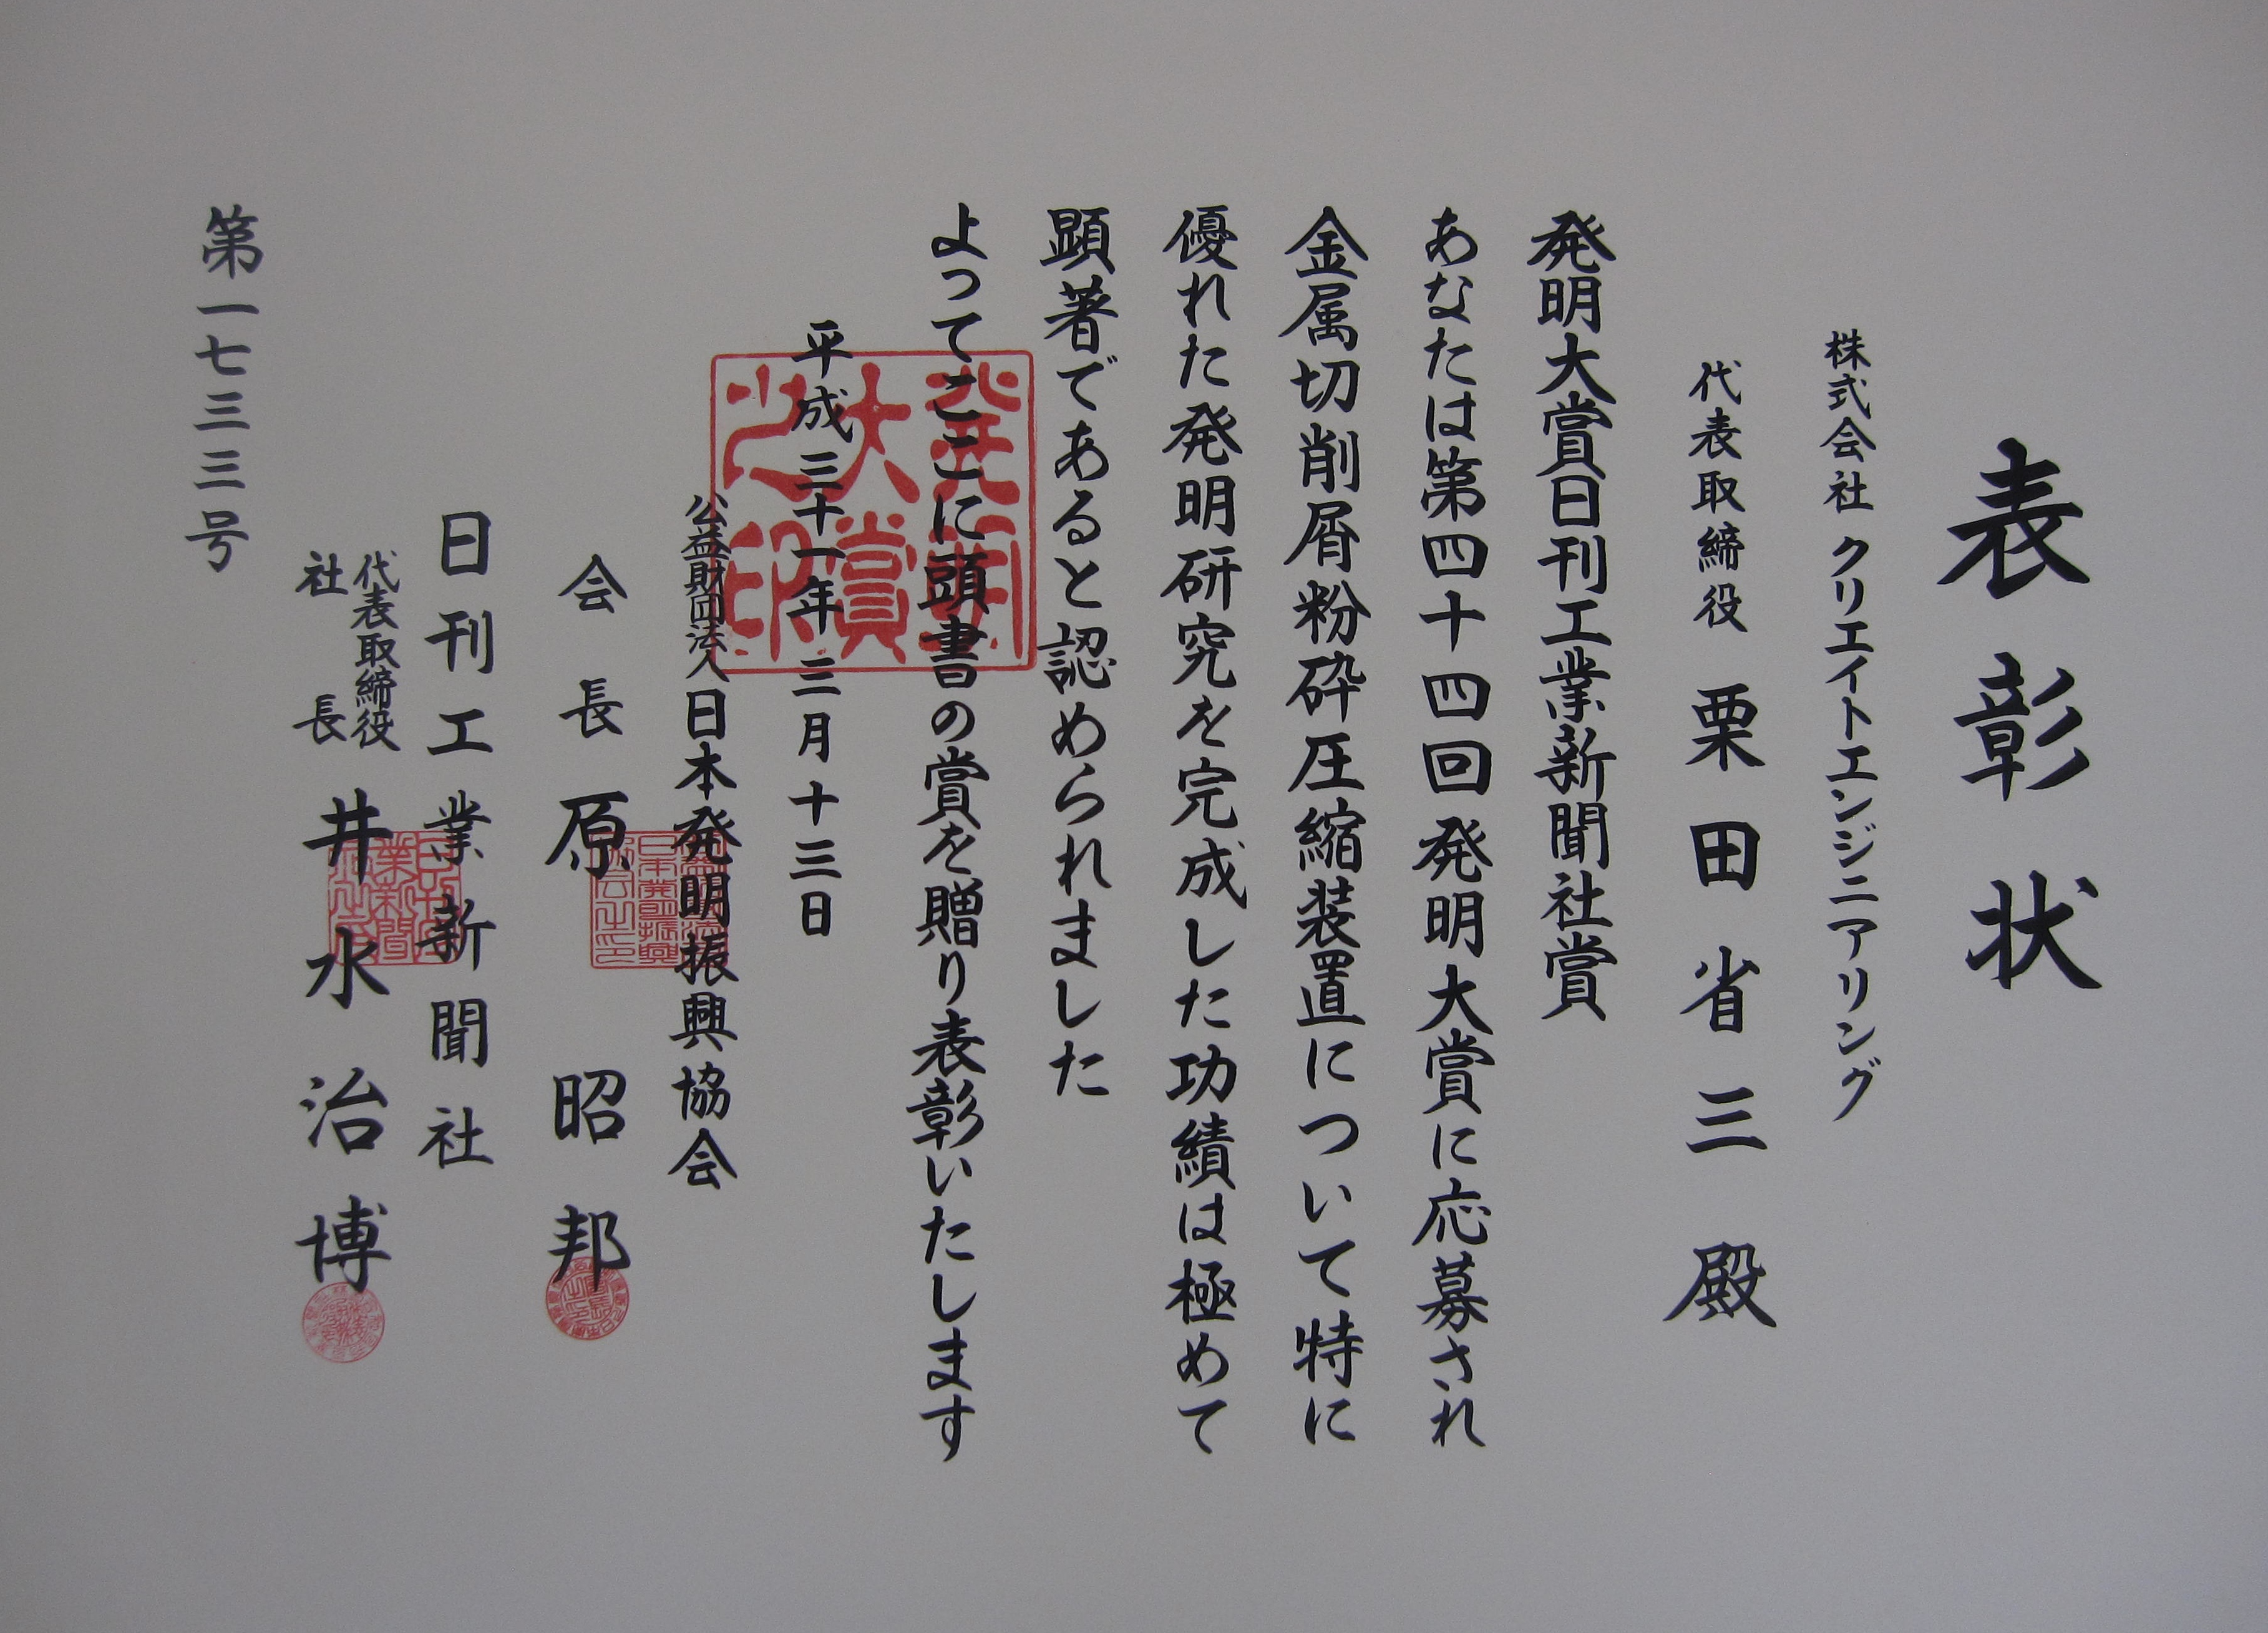 表彰状
株式会社 クリエイトエンジニアリング
代表取締役 栗田省三殿
発明大賞日刊工業新聞社賞
あなたは第四十四回発明大賞に応募され
金属切削屑粉砕圧縮装置について特に
優れた発明研究を完成した功績は極めて
顕著であると認められました
よってここに頭書の賞を贈り表彰いたします
発明大賞之印
平成三十一年三月十三日
公益財団法人日本発明振興協会
会長 原昭邦
日刊工業新聞社
代表取締役
社長 井水治博
第一七三三号